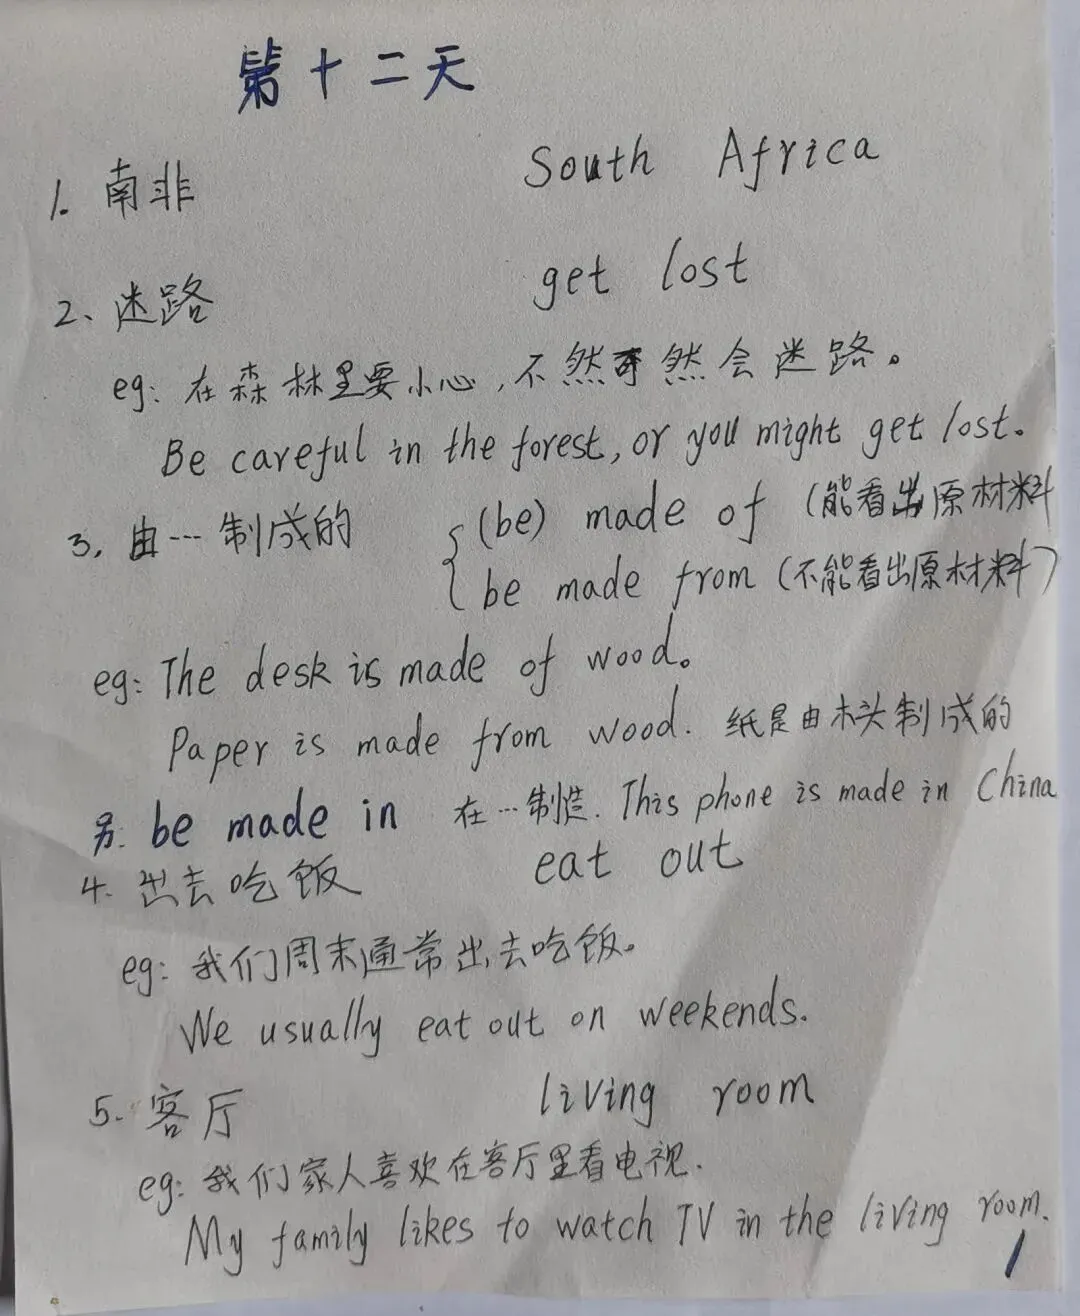 第十二天
1. 南非 South Africa
2、迷路 get lost
eg: 在森林里要小心,不然可然会迷路。
Be careful in the forest, or you might get lost.
3, 由…制成的 { (be) made of (能看出原材料
be made from (不能看出原材料)
eg: The desk is made of wood。
Paper is made from wood. 纸是由木头制成的
另: be made in 在…制造. This phone is made in China
4. 出去吃饭 eat out
eg: 我们周末通常出去吃饭。
We usually eat out on weekends.
5. 客厅 living room
eg: 我们家人喜欢在客厅里看电视.
My family likes to watch TV in the living room.
1